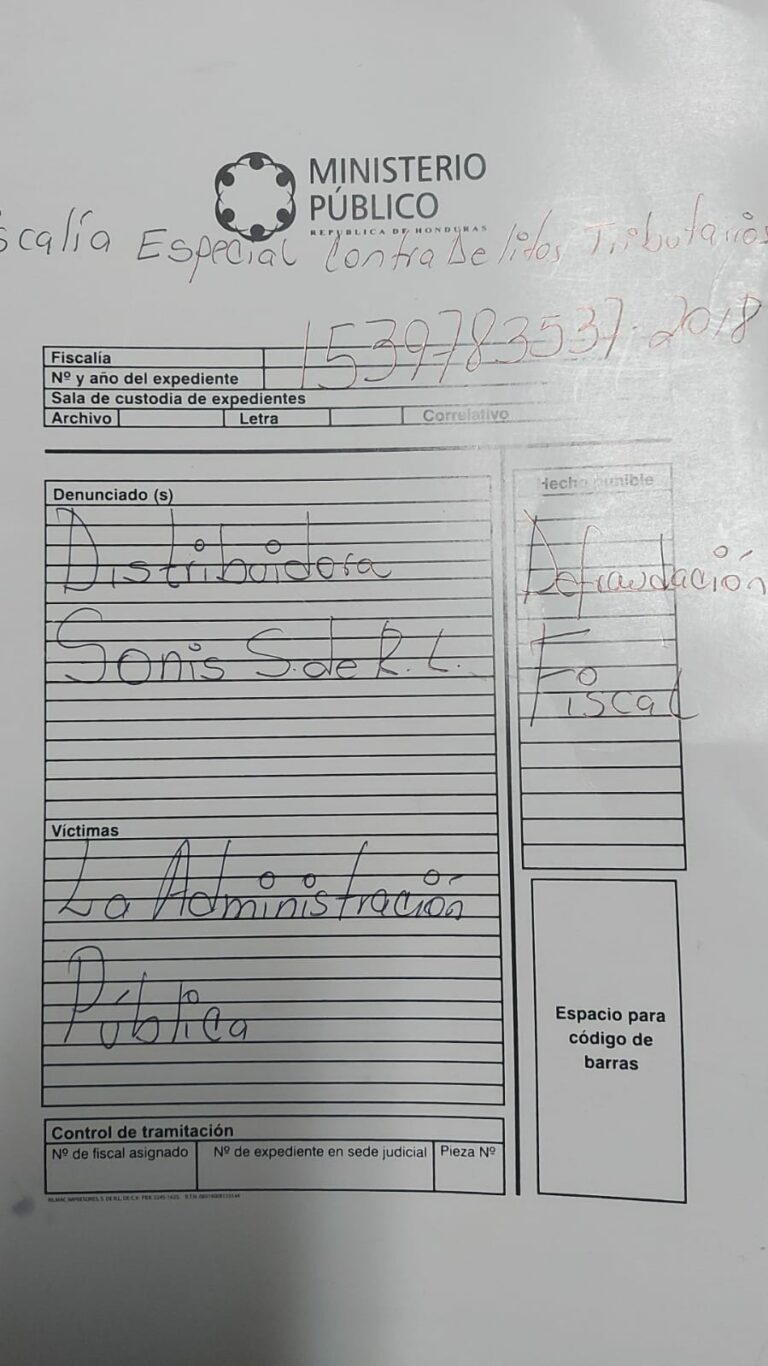 MINISTERIO
PÚBLICO
REPUBLICA DE HONDURAS
scalía Especial Contra Delitos Tributarios
Fiscalía
1539783537-2018
Nº y año del expediente
Sala de custodia de expedientes
Archivo Letra Correlativo
Denunciado (s) Hecho punible
Distribuidora
Sonis S. de R. L.
Defraudación
Fiscal
Víctimas
La Administración
Pública
Espacio para
código de
barras
Control de tramitación
Nº de fiscal asignado Nº de expediente en sede judicial Pieza Nº